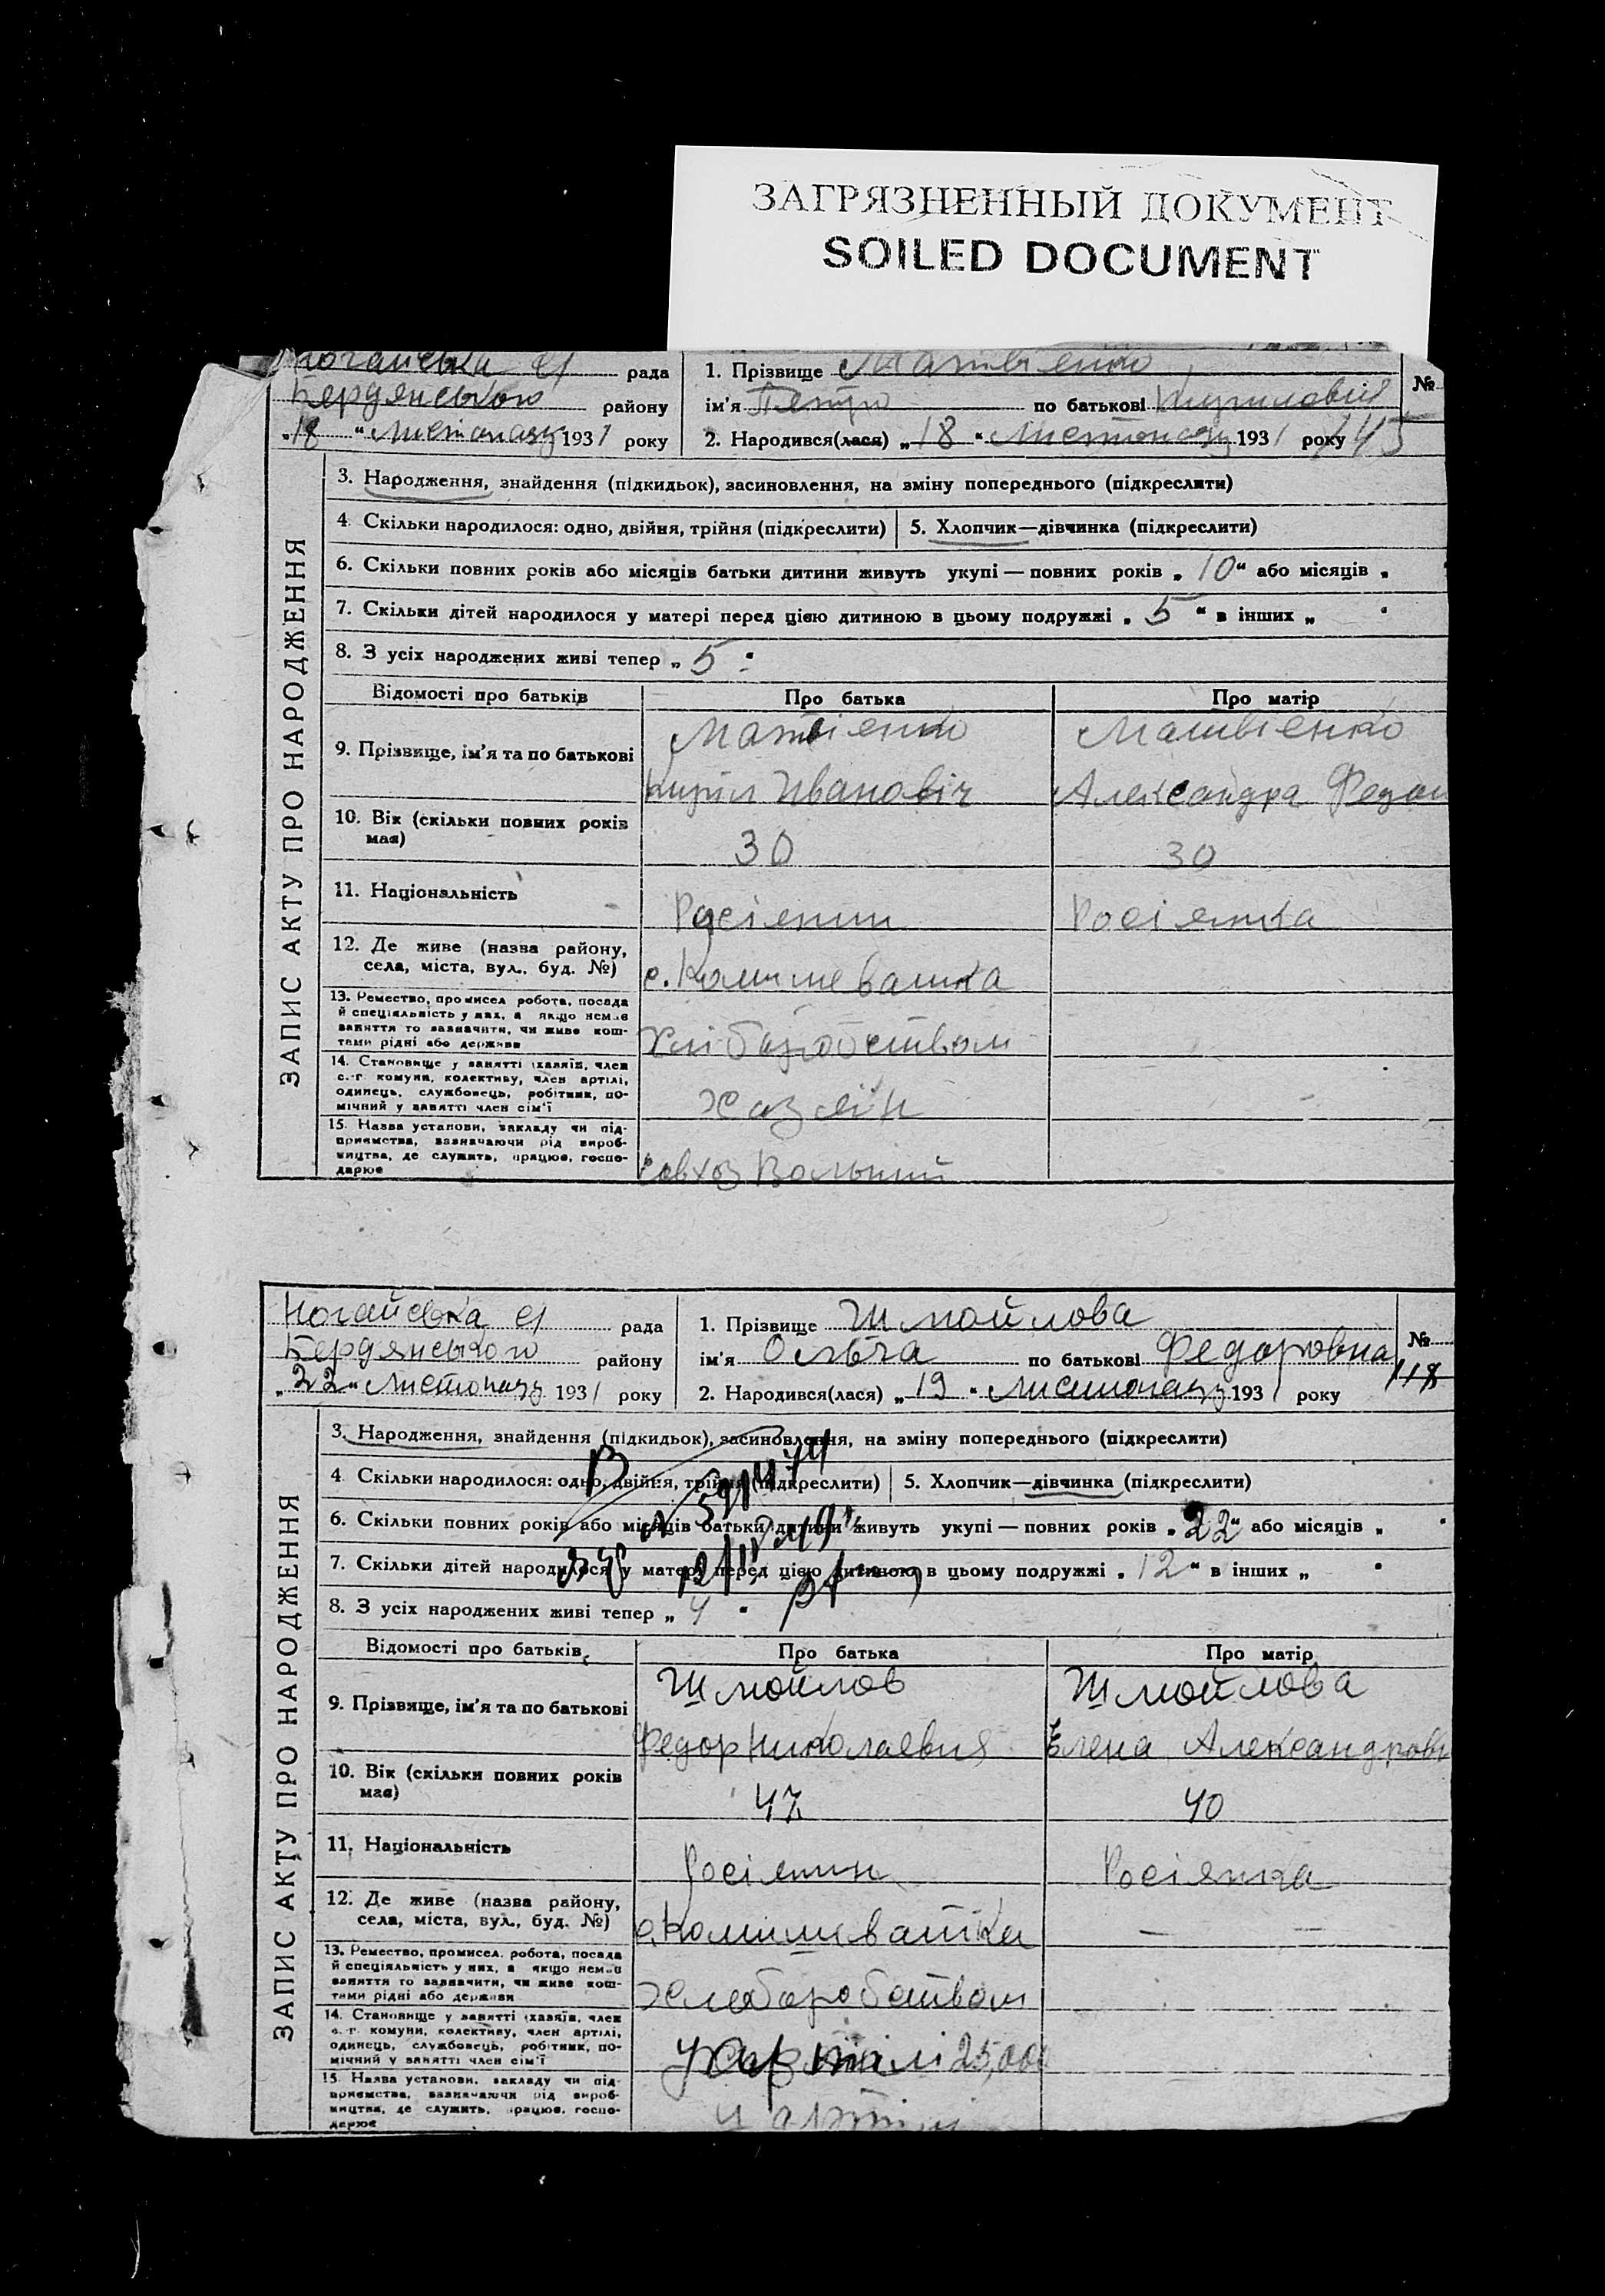 ЗАГРЯЗНЕННЫЙ ДОКУМЕНТ
SOILED DOCUMENT
Ногайська рада
Бердянського району
„18“ Листопаду 1931 року
1. Прізвище Матвіенко
ім'я Петро по батькові
2. Народився(лася) „18“ Листопаду 1931 року
№ 145
ЗАПИС АКТУ ПРО НАРОДЖЕННЯ
3. Народження, знайдення (підкидьок), засиновлення, на зміну попереднього (підкреслити)
4. Скільки народилося: одно, двійня, трійня (підкреслити) 5. Хлопчик—дівчинка (підкреслити)
6. Скільки повних років або місяців батьки дитини живуть укупі — повних років „10“ або місяців „
7. Скільки дітей народилося у матері перед цією дитиною в цьому подружжі „5“ в інших „
8. З усіх народжених живі тепер „5“
Відомості про батьків Про батька Про матір
9. Прізвище, ім'я та по батькові
Матвіенко Матвіенко
Кирил Іванович Александра
10. Вік (скільки повних років має)
30 30
11. Національність
Росіянин Росіянка
12. Де живе (назва району,
села, міста, вул., буд. №)
с. Комишеватка
13. Ремество, промисел робота, посада
й спеціяльність у них, а якщо немає
заняття то зазначити, чи живе кош-
тами рідні або держави
Хліборобством
14. Становище у занятті (хазяїн, член
с.-г. комуни, колективу, член артілі,
одинець, службовець, робітник, по-
мічний у занятті член сім'ї
Хазяїн
15. Назва установи, закладу чи під-
приємства, зазначаючи рід вироб-
ництва, де служить, працює, госпо-
дарює
Совхоз Вольний
Ногайська рада
Бердянського району
„22“ Листопаду 1931 року
1. Прізвище Шмойлова
ім'я Ольга по батькові Федоровна
2. Народився(лася) „19“ Листопаду 1931 року
№ 118
ЗАПИС АКТУ ПРО НАРОДЖЕННЯ
3. Народження, знайдення (підкидьок), засиновлення, на зміну попереднього (підкреслити)
4. Скільки народилося: одно, двійня, трійня (підкреслити) 5. Хлопчик—дівчинка (підкреслити)
6. Скільки повних років або місяців батьки дитини живуть укупі — повних років „22“ або місяців „
7. Скільки дітей народилося у матері перед цією дитиною в цьому подружжі „12“ в інших „
8. З усіх народжених живі тепер „4“
Відомості про батьків Про батька Про матір
9. Прізвище, ім'я та по батькові
Шмойлов Шмойлова
Федор Николаевич Елена Александровн
10. Вік (скільки повних років має)
47 40
11. Національність
Росіянин Росіянка
12. Де живе (назва району,
села, міста, вул., буд. №)
с. Комишеватка — —
13. Ремество, промисел. робота, посада
й спеціяльність у них, а якщо немає
заняття то зазначити, чи живе кош-
тами рідні або держави
Хлеборобством
14. Становище у занятті (хазяїн, член
с.-г. комуни, колективу, член артілі,
одинець, службовець, робітник, по-
мічний у занятті член сім'ї
15. Назва установи, закладу чи під-
приємства, зазначаючи рід вироб-
ництва, де служить, працює, госпо-
дарює